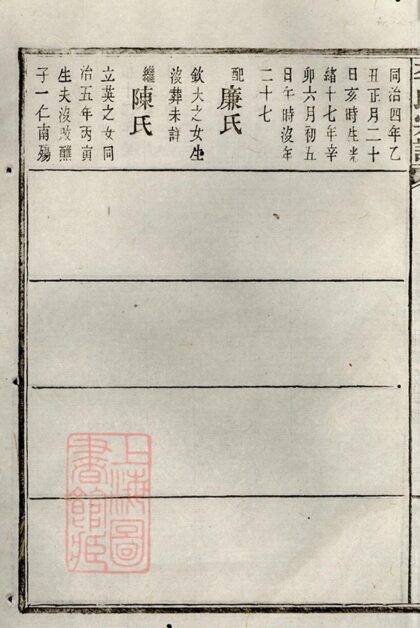 同治四年乙
丑正月二十
日亥時生光
緒十七年辛
卯六月初五
日午時沒年
二十七
配
廉氏
欽大之女生
沒葬未詳
繼
陳氏
立英之女同
治五年丙寅
生夫沒改醮
子一仁南殤
上海圖
書館藏